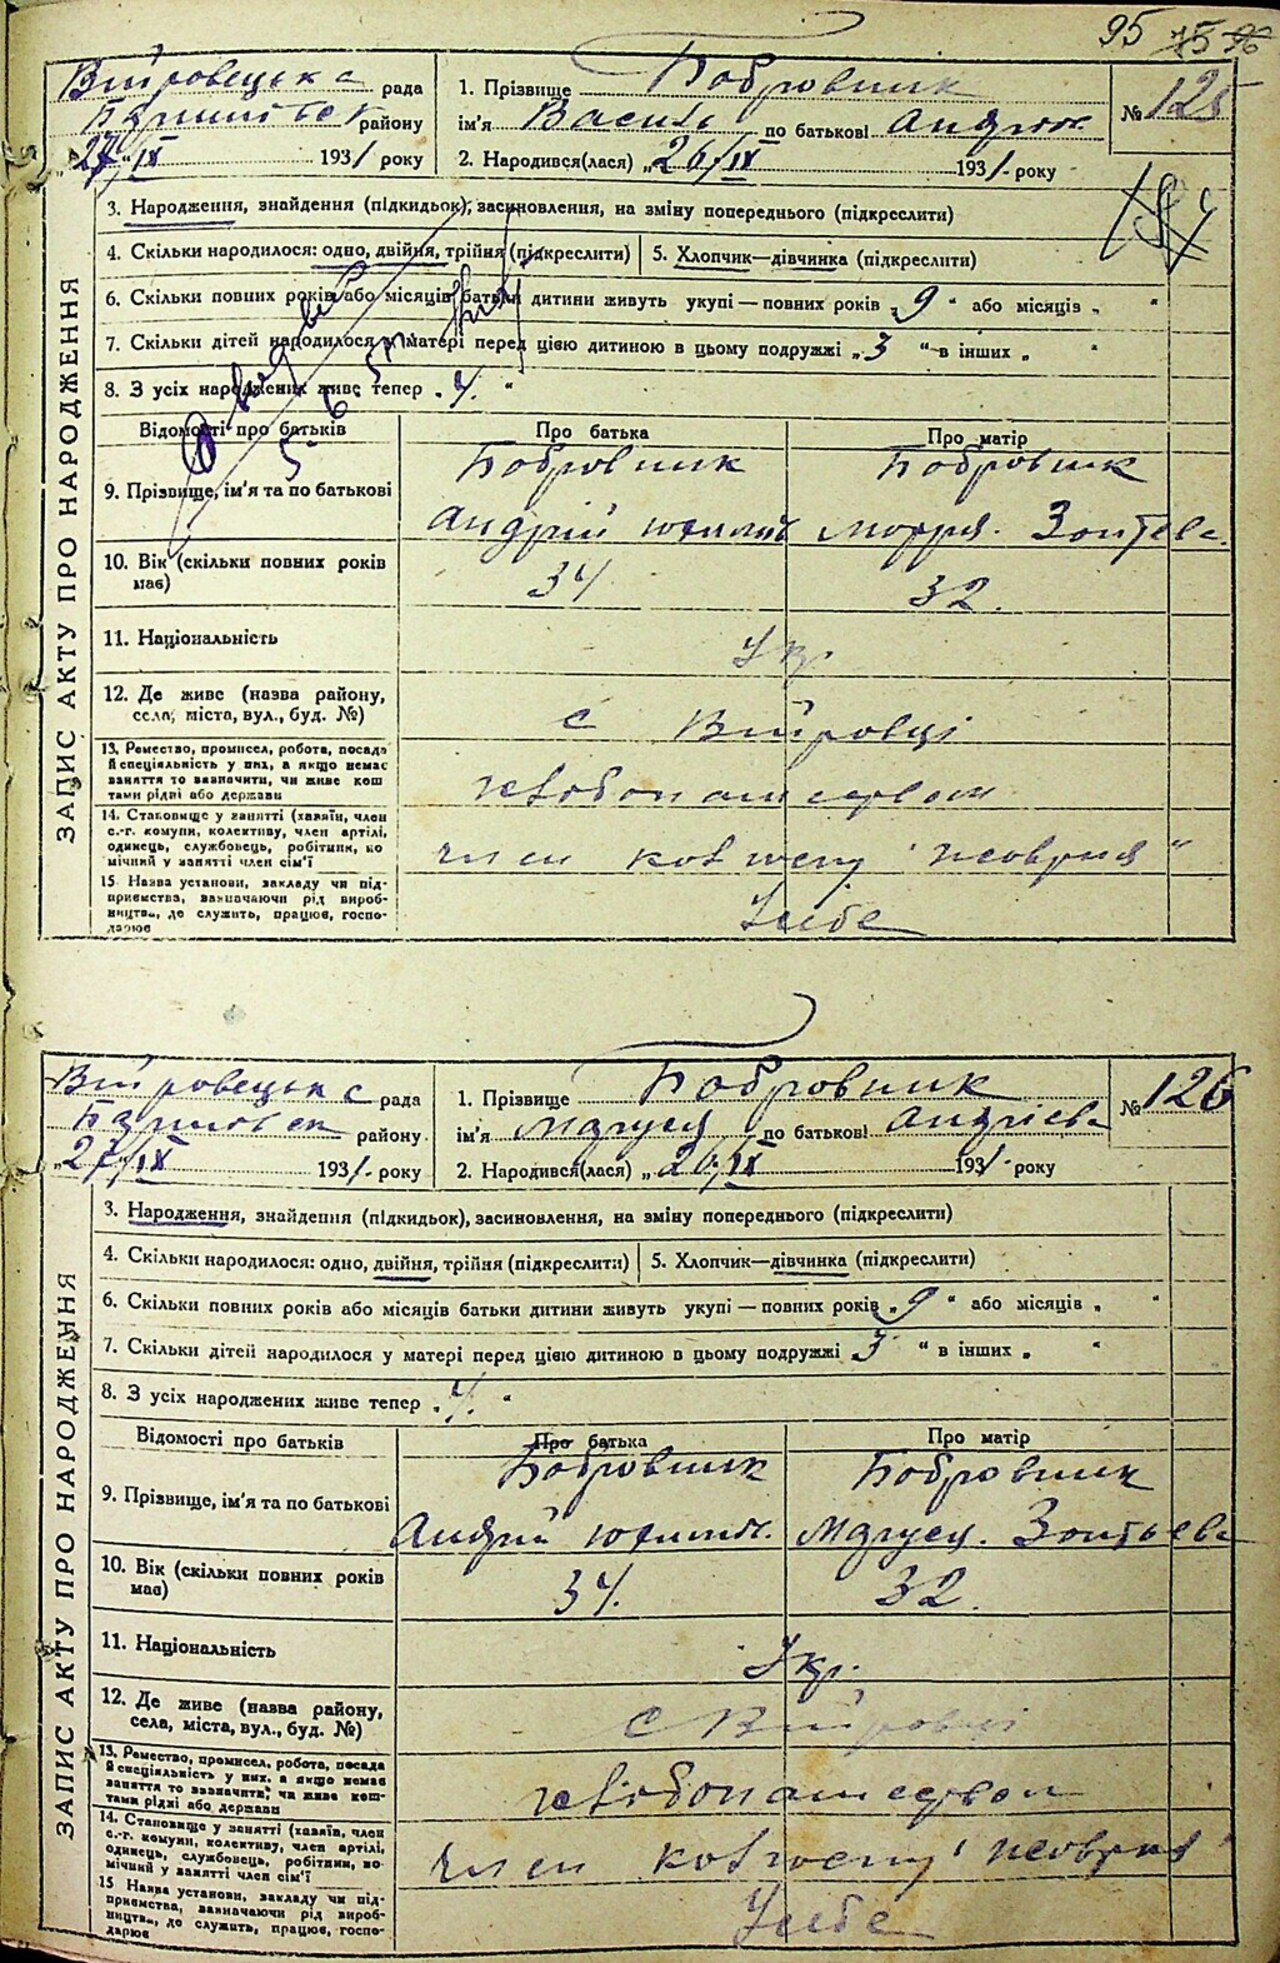 95 75 96
Війровецька рада
району
„27„ IX 1931 року
1. Прізвище Бобровник
ім'я Василь по батькові Андрієв.
2. Народився(лася) „26/IX 1931 - року
№ 125
ЗАПИС АКТУ ПРО НАРОДЖЕННЯ
3. Народження, знайдення (підкидьок), засиновлення, на зміну попереднього (підкреслити)
4. Скільки народилося: одно, двійня, трійня (підкреслити)
5. Хлопчик—дівчинка (підкреслити)
6. Скільки повних років або місяців батьки дитини живуть укупі — повних років „ 9 “ або місяців „ “
7. Скільки дітей народилося у матері перед цією дитиною в цьому подружжі „ 3 “ в інших „ “
8. З усіх народжених живе тепер „ 4. “
Відомості про батьків
Про батька
Про матір
9. Прізвище, ім'я та по батькові
Бобровник
Андрій
Бобровник
10. Вік (скільки повних років
має)
34
32.
11. Національність
Укр.
12. Де живе (назва району,
села, міста, вул., буд. №)
с Війровці
13. Ремество, промисел, робота, посада
й спеціальність у них, а якщо немає
заняття то зазначити, чи живе кош
тами рідні або держави
хліборобством
14. Становище у занятті (хазяїн, член
с.-г. комуни, колективу, член артілі,
одинець, службовець, робітник, по
мічний у занятті член сім'ї
член колгоспу
15 Назва установи, закладу чи під-
приємства, вазначаючи рід вироб-
ництва, де служить, працює, госпо-
дарює
У себе
Війровецька рада
району
„27„ IX 1931 - року
1. Прізвище Бобровник
ім'я Маруся по батькові Андріева
2. Народився(лася) „ 26. IX 1931 - року
№ 126
ЗАПИС АКТУ ПРО НАРОДЖЕННЯ
3. Народження, знайдення (підкидьок), засиновлення, на зміну попереднього (підкреслити)
4. Скільки народилося: одно, двійня, трійня (підкреслити)
5. Хлопчик—дівчинка (підкреслити)
6. Скільки повних років або місяців батьки дитини живуть укупі — повних років „ 9 “ або місяців „ “
7. Скільки дітей народилося у матері перед цією дитиною в цьому подружжі „ 3 “ в інших „ “
8. З усіх народжених живе тепер „ 4. “
Відомості про батьків
Про батька
Про матір
9. Прізвище, ім'я та по батькові
Бобровник
Андрій
Бобровник
Маруся.
10. Вік (скільки повних років
має)
34.
32.
11. Національність
Укр.
12. Де живе (назва району,
села, міста, вул., буд. №)
с Війровці
13. Ремество, промисел, робота, посада
й спеціальність у них, а якщо немає
заняття то зазначити, чи живе кош-
тами рідні або держави
хліборобством
14. Становище у занятті (хазяїн, член
с.-г. комуни, колективу, член артілі,
одинець, службовець, робітник, по
мічний у занятті член сім'ї
член колгоспу
15 Назва установи, закладу чи під-
приємства, вазначаючи рід вироб-
ництва, де служить, працює, госпо-
дарює
У себе